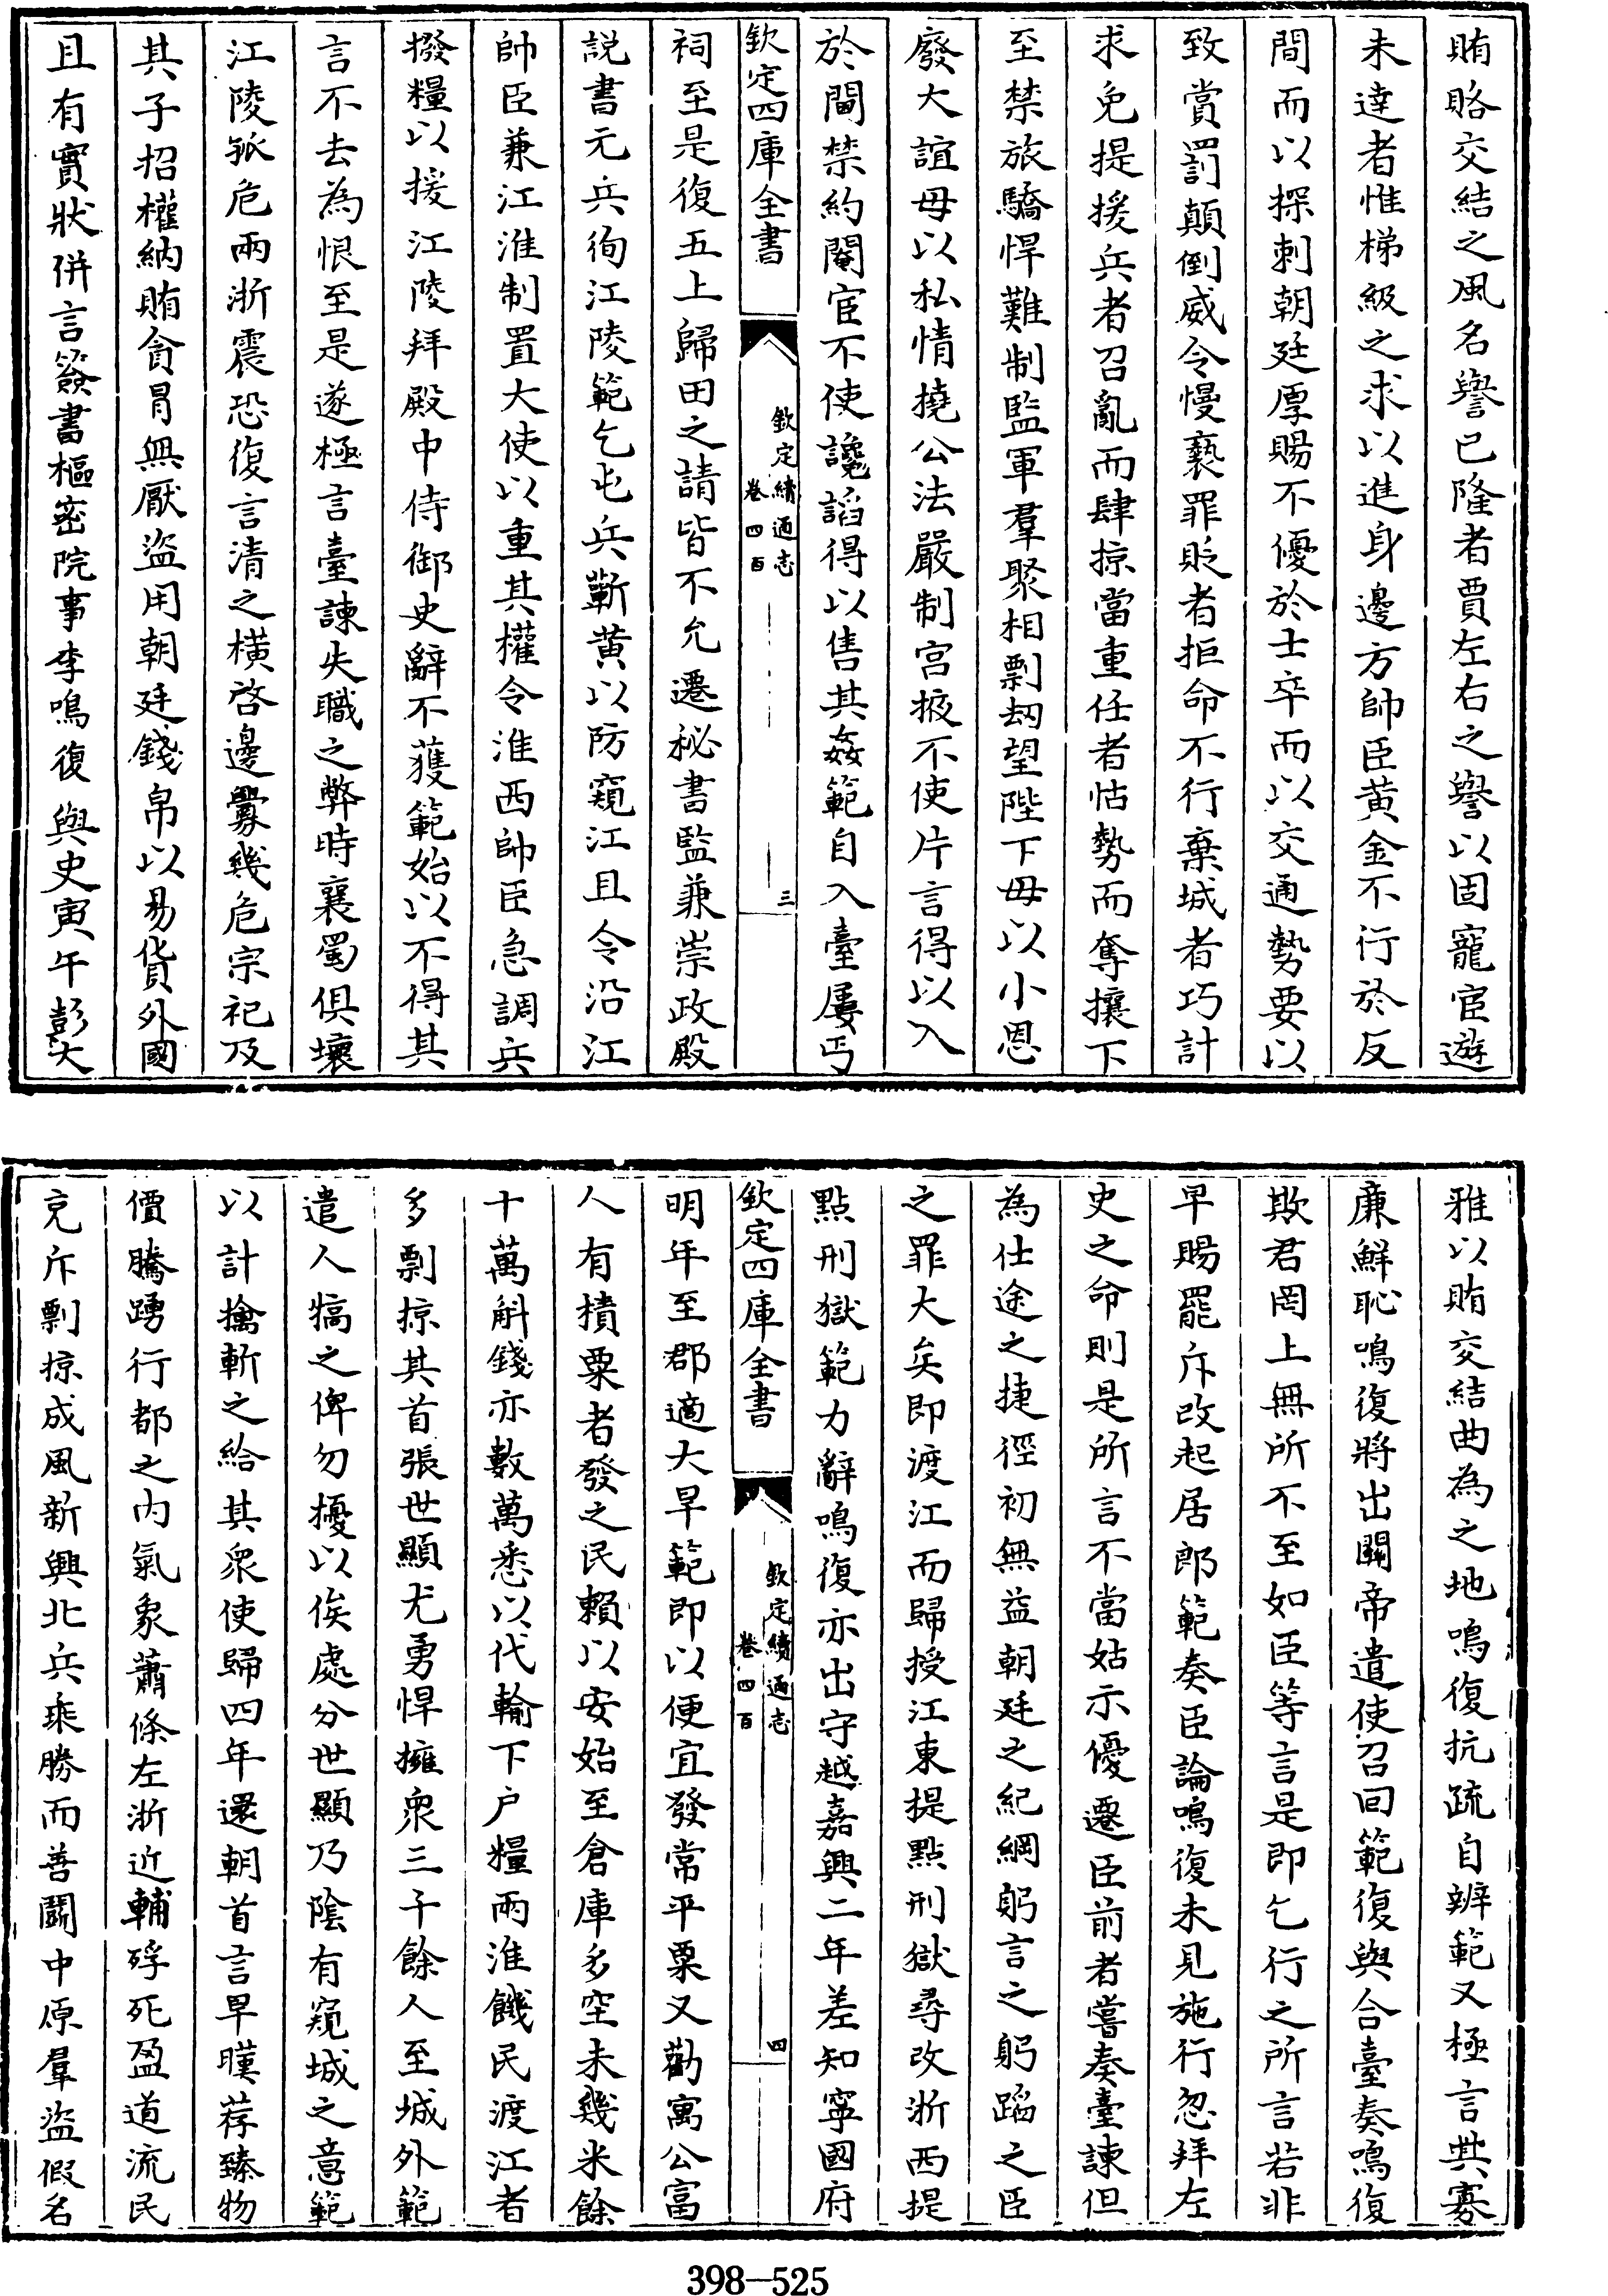 賄賂交結之風名譽已隆者賈左右之譽以固寵宦遊
未達者惟梯級之求以進身邊方帥臣黄金不行於反
間而以探刺朝廷厚賜不優於士卒而以交通勢要以
致賞罰顛倒威令慢褻罪貶者拒命不行棄城者巧計
求免提援兵者召亂而肆掠當重任者怙勢而奪攘下
至禁旅驕悍難制監軍羣聚相剽刼望陛下毋以小恩
廢大誼毋以私情撓公法嚴制宫掖不使片言得以入
於閫禁約閹宦不使讒諂得以售其姦範自入臺屢丐
欽定四庫全書
欽定續通志
卷四百
三
祠至是復五上歸田之請皆不允遷秘書監兼崇政殿
説書元兵徇江陵範乞屯兵蘄黄以防窺江且令沿江
帥臣兼江淮制置大使以重其權令淮西帥臣急調兵
撥糧以援江陵拜殿中侍御史辭不獲範始以不得其
言不去為恨至是遂極言臺諫失職之弊時襄蜀俱壞
江陵孤危兩浙震恐復言清之横啓邊釁幾危宗祀及
其子招權納賄貪冒無厭盜用朝廷錢帛以易貨外國
且有實狀併言簽書樞密院事李鳴復與史寅午彭大
雅以賄交結曲為之地鳴復抗疏自辨範又極言其寡
廉鮮恥鳴復將出關帝遣使召回範復與合臺奏鳴復
欺君罔上無所不至如臣等言是即乞行之所言若非
早賜罷斥改起居郎範奏臣論鳴復未見施行忽拜左
史之命則是所言不當姑示優遷臣前者嘗奏臺諫但
為仕途之捷徑初無益朝廷之紀綱躬言之躬蹈之臣
之罪大矣即渡江而歸授江東提點刑獄尋改浙西提
點刑獄範力辭鳴復亦出守越嘉興二年差知寧國府
欽定四庫全書
欽定續通志
卷四百
四
明年至郡適大旱範即以便宜發常平粟又勸寓公富
人有積粟者發之民賴以安始至倉庫多空未幾米餘
十萬斛錢亦數萬悉以代輸下户糧兩淮饑民渡江者
多剽掠其首張世顯尤勇悍擁衆三千餘人至城外範
遣人犒之俾勿擾以俟處分世顯乃陰有窺城之意範
以計擒斬之給其衆使歸四年還朝首言旱暵荐臻物
價騰踴行都之内氣象蕭條左浙近輔殍死盈道流民
充斥剽掠成風新興北兵乘勝而善鬬中原羣盜假名
398—525